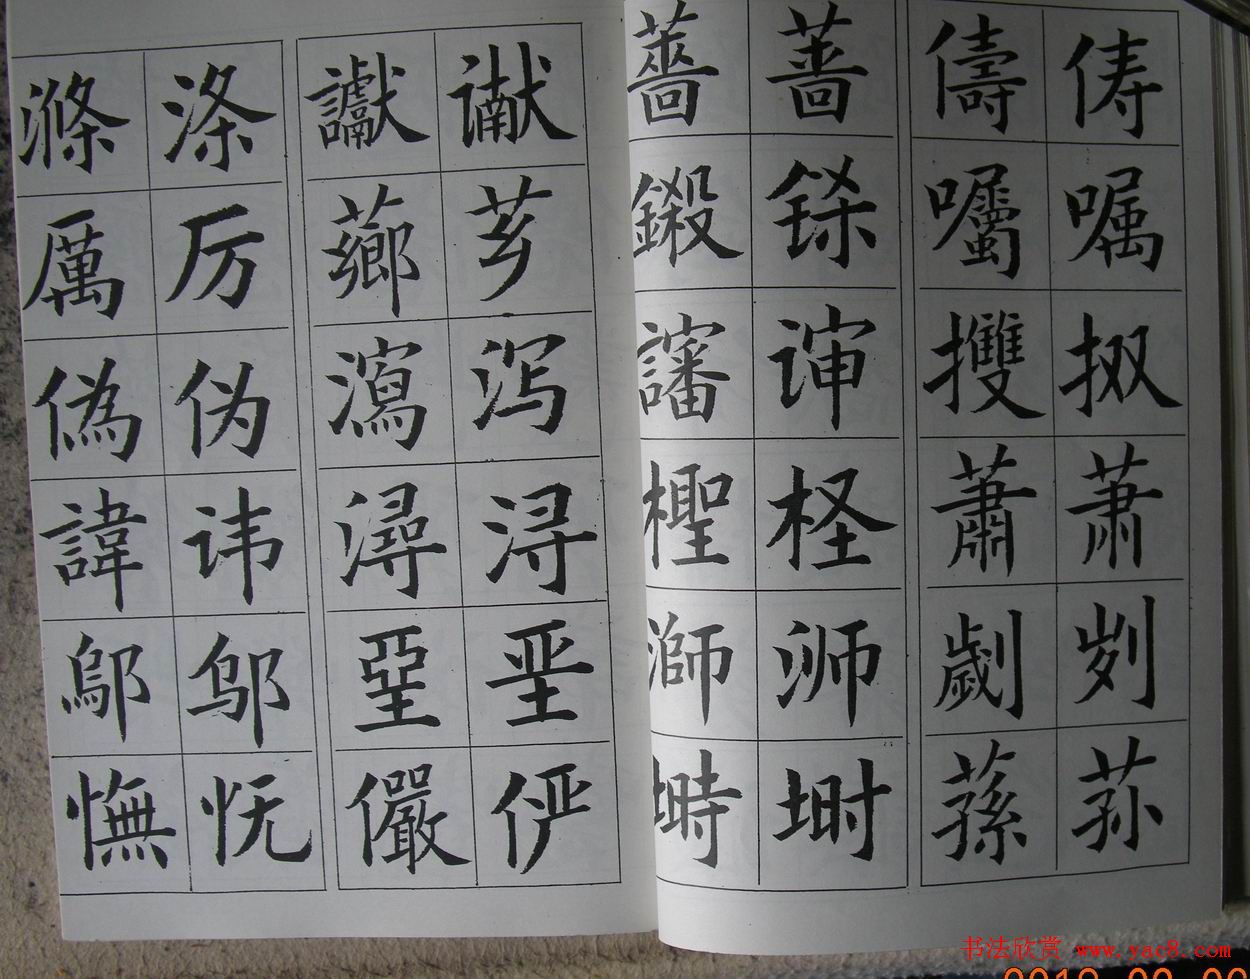 滌 涤 讞 谳
厲 厉 薌 芗
偽 伪 瀉 泻
諱 讳 潯 浔
鄔 邬 堊 垩
憮 怃 儼 俨
薔 蔷 儔 俦
鎩 铩 囑 嘱
讅 谉 㩳 㧐
檉 柽 蕭 萧
溮 浉 劌 刿
塒 埘 蓀 荪
书法欣赏 www.yac8.com